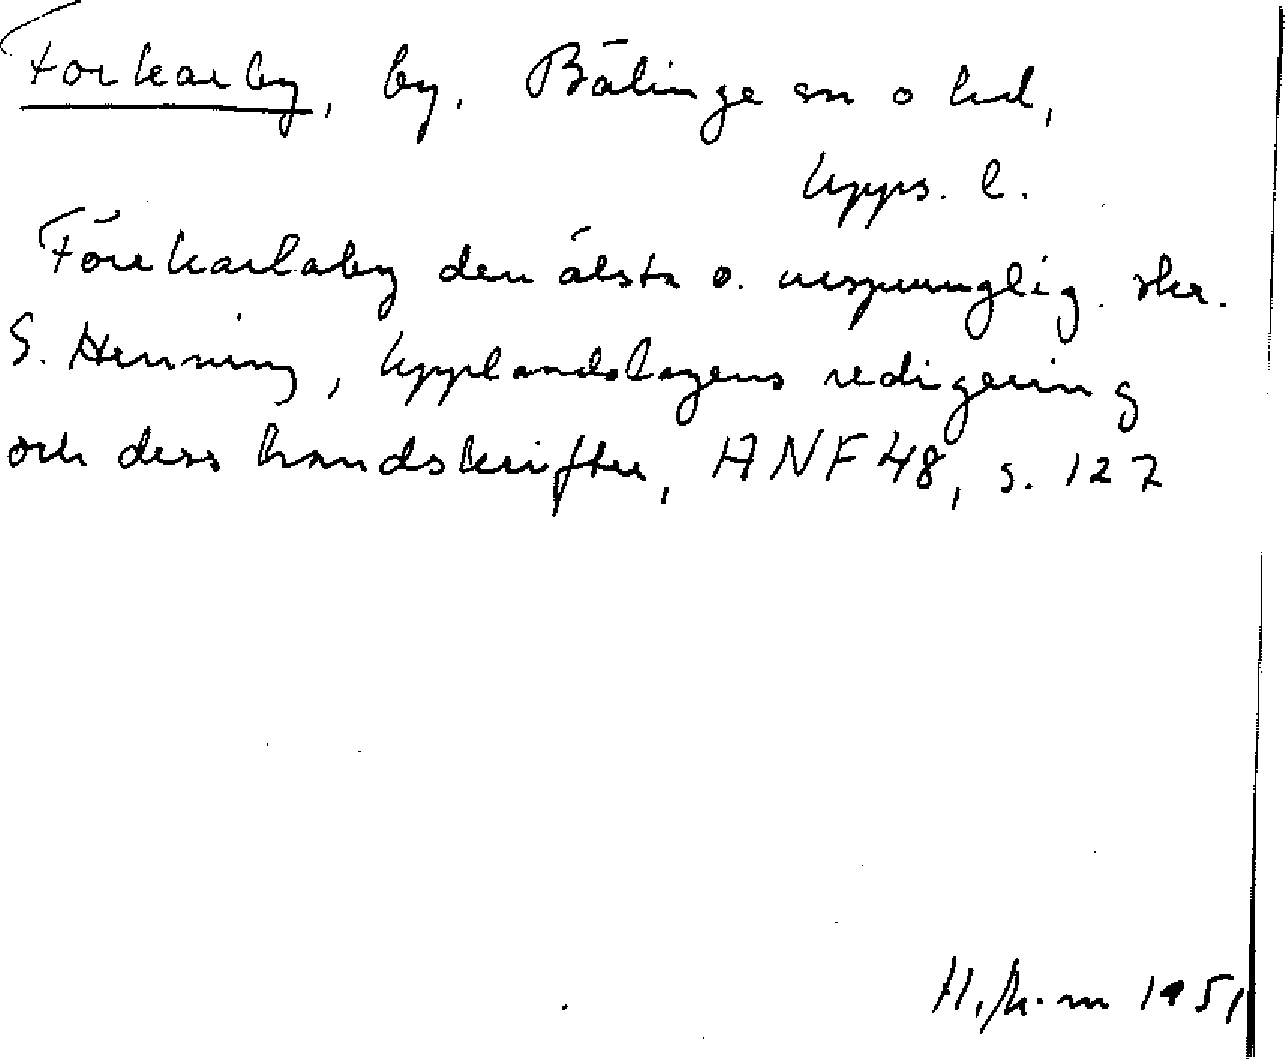 Forkarby, by, Bälinge sn o hd,
Upps. l.
Förekarlaby den älsta o. ursprunglig. skr.
S. Henning, Upplandslagens redigering
och dess handskrifter, ANF 48, s. 127
1951